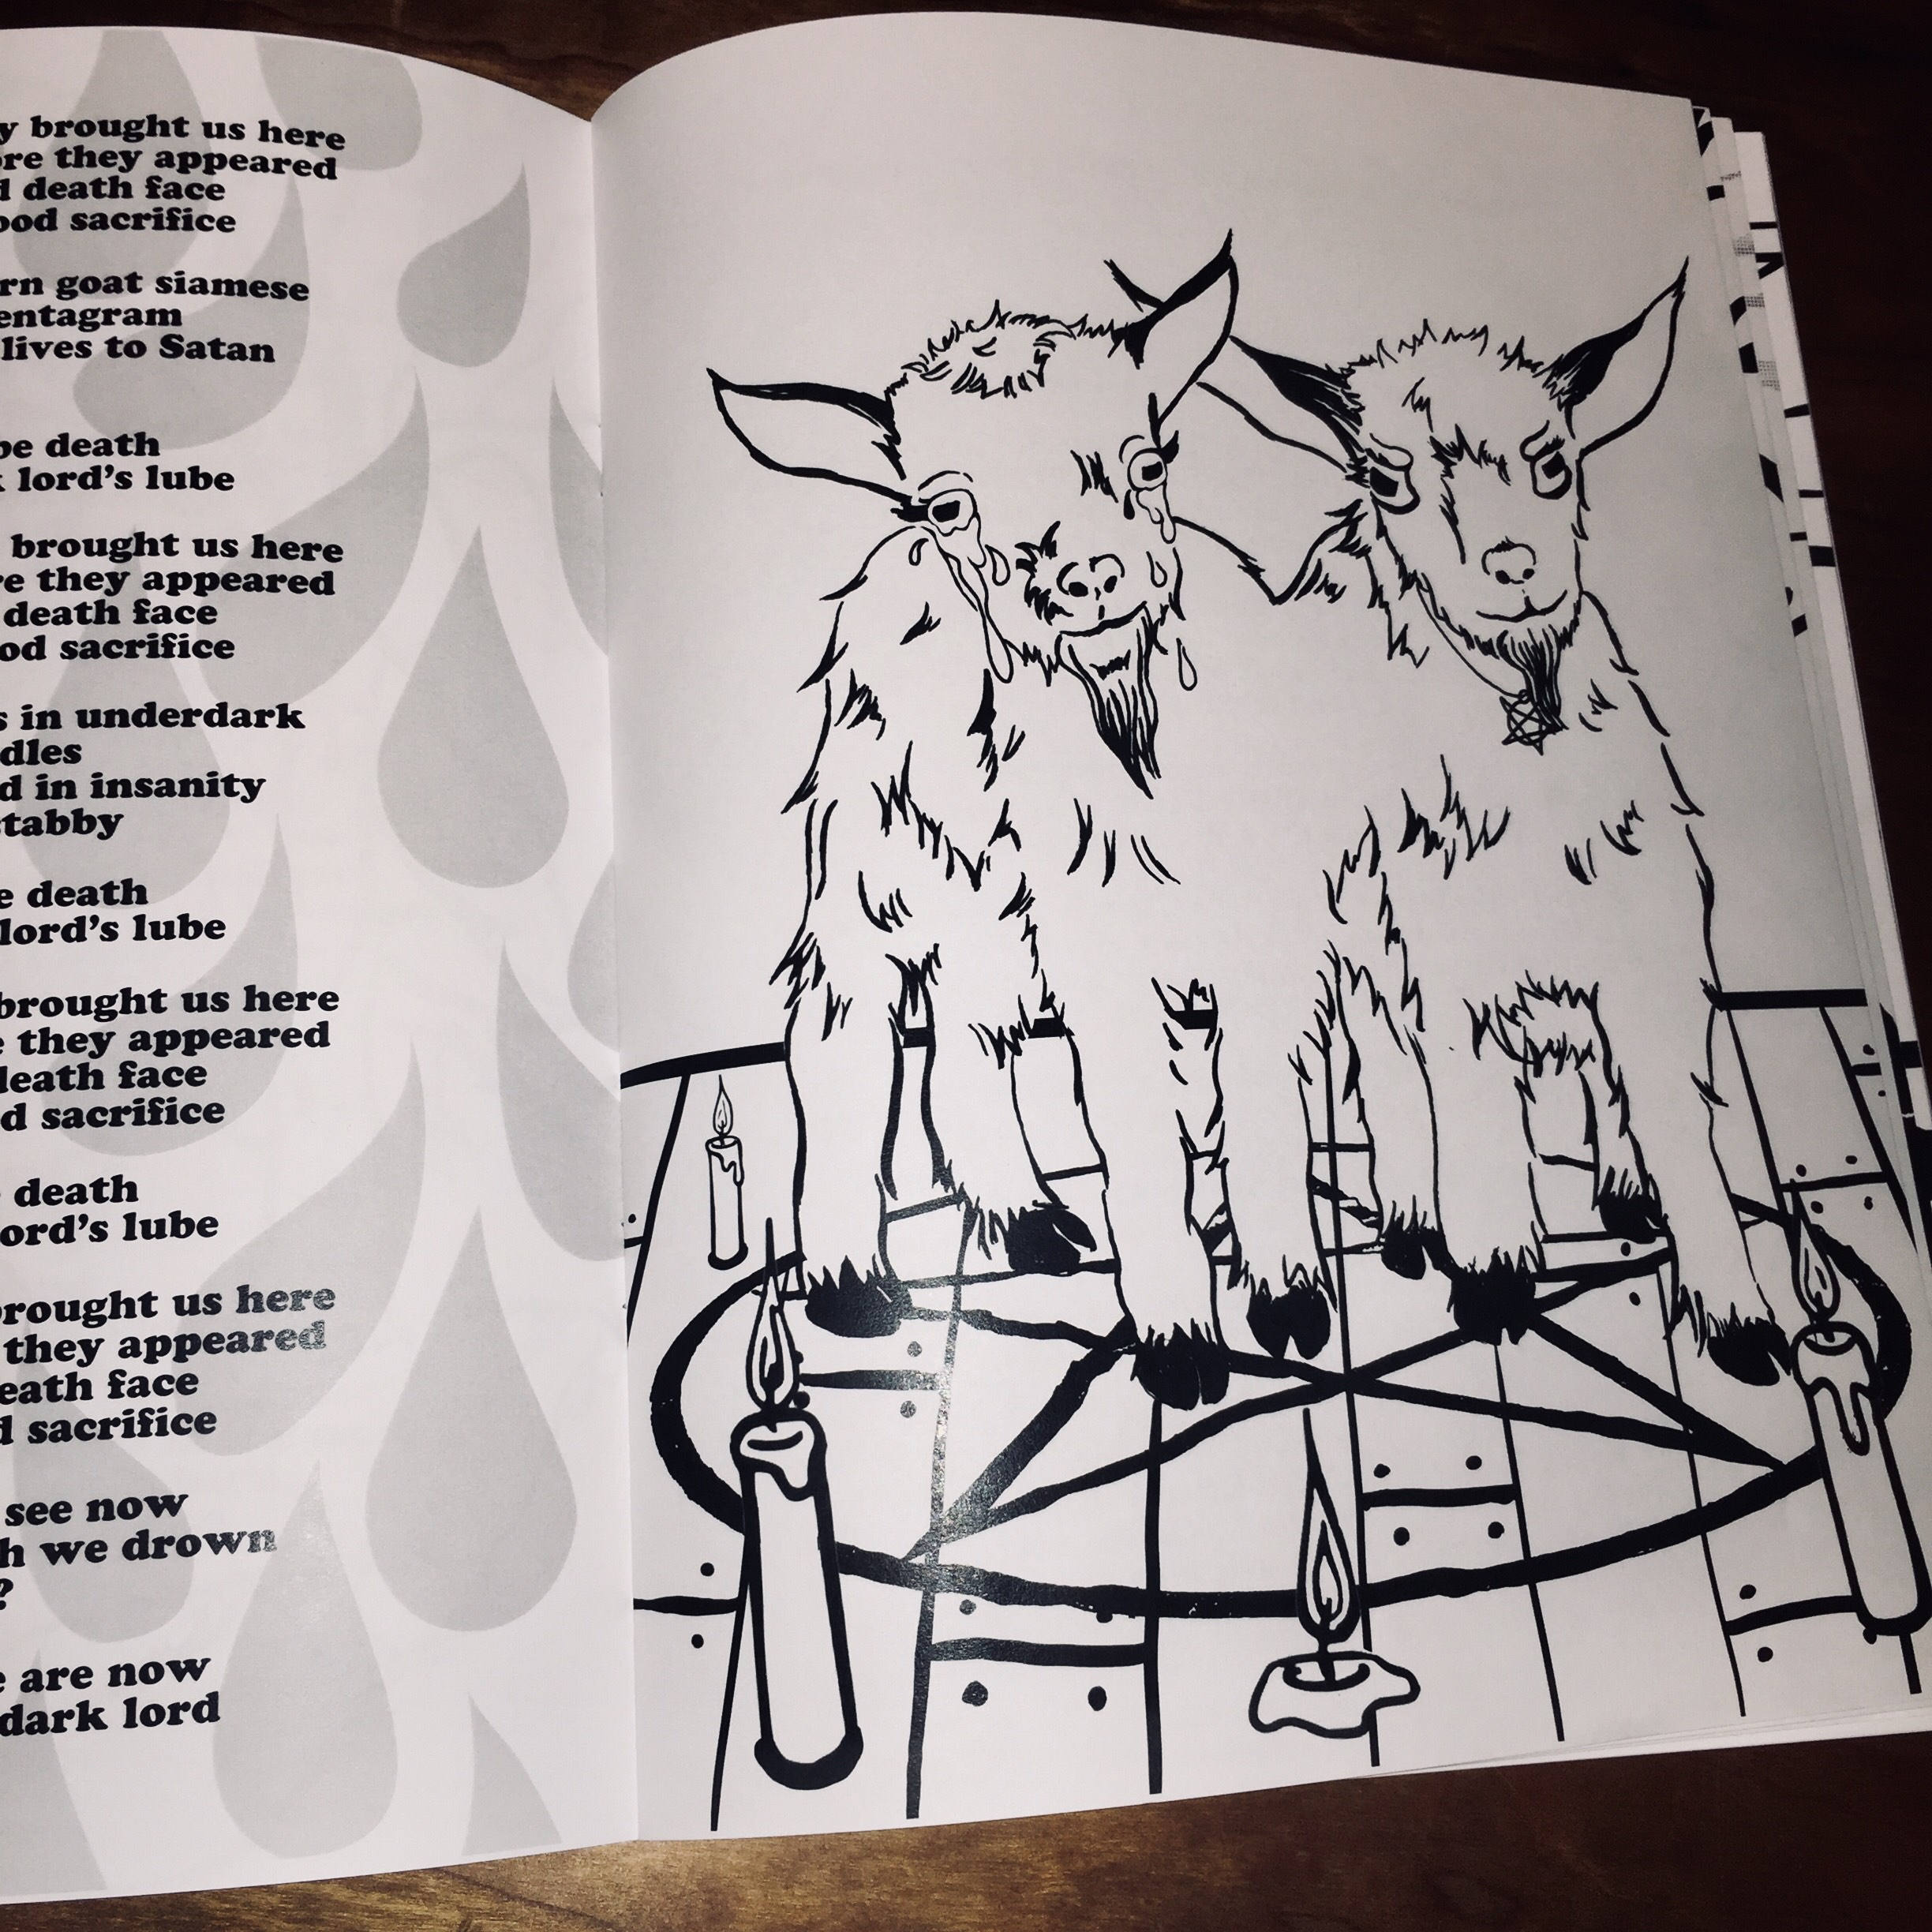 brought us here
they appeared
death face
sacrifice
goat siamese
lives to Satan
be death
lord's lube
brought us here
they appeared
death face
sacrifice
in underdark
in insanity
death
lord's lube
brought us here
they appeared
death face
sacrifice
death
lord's lube
brought us here
they appeared
death face
sacrifice
see now
we drown
are now
dark lord